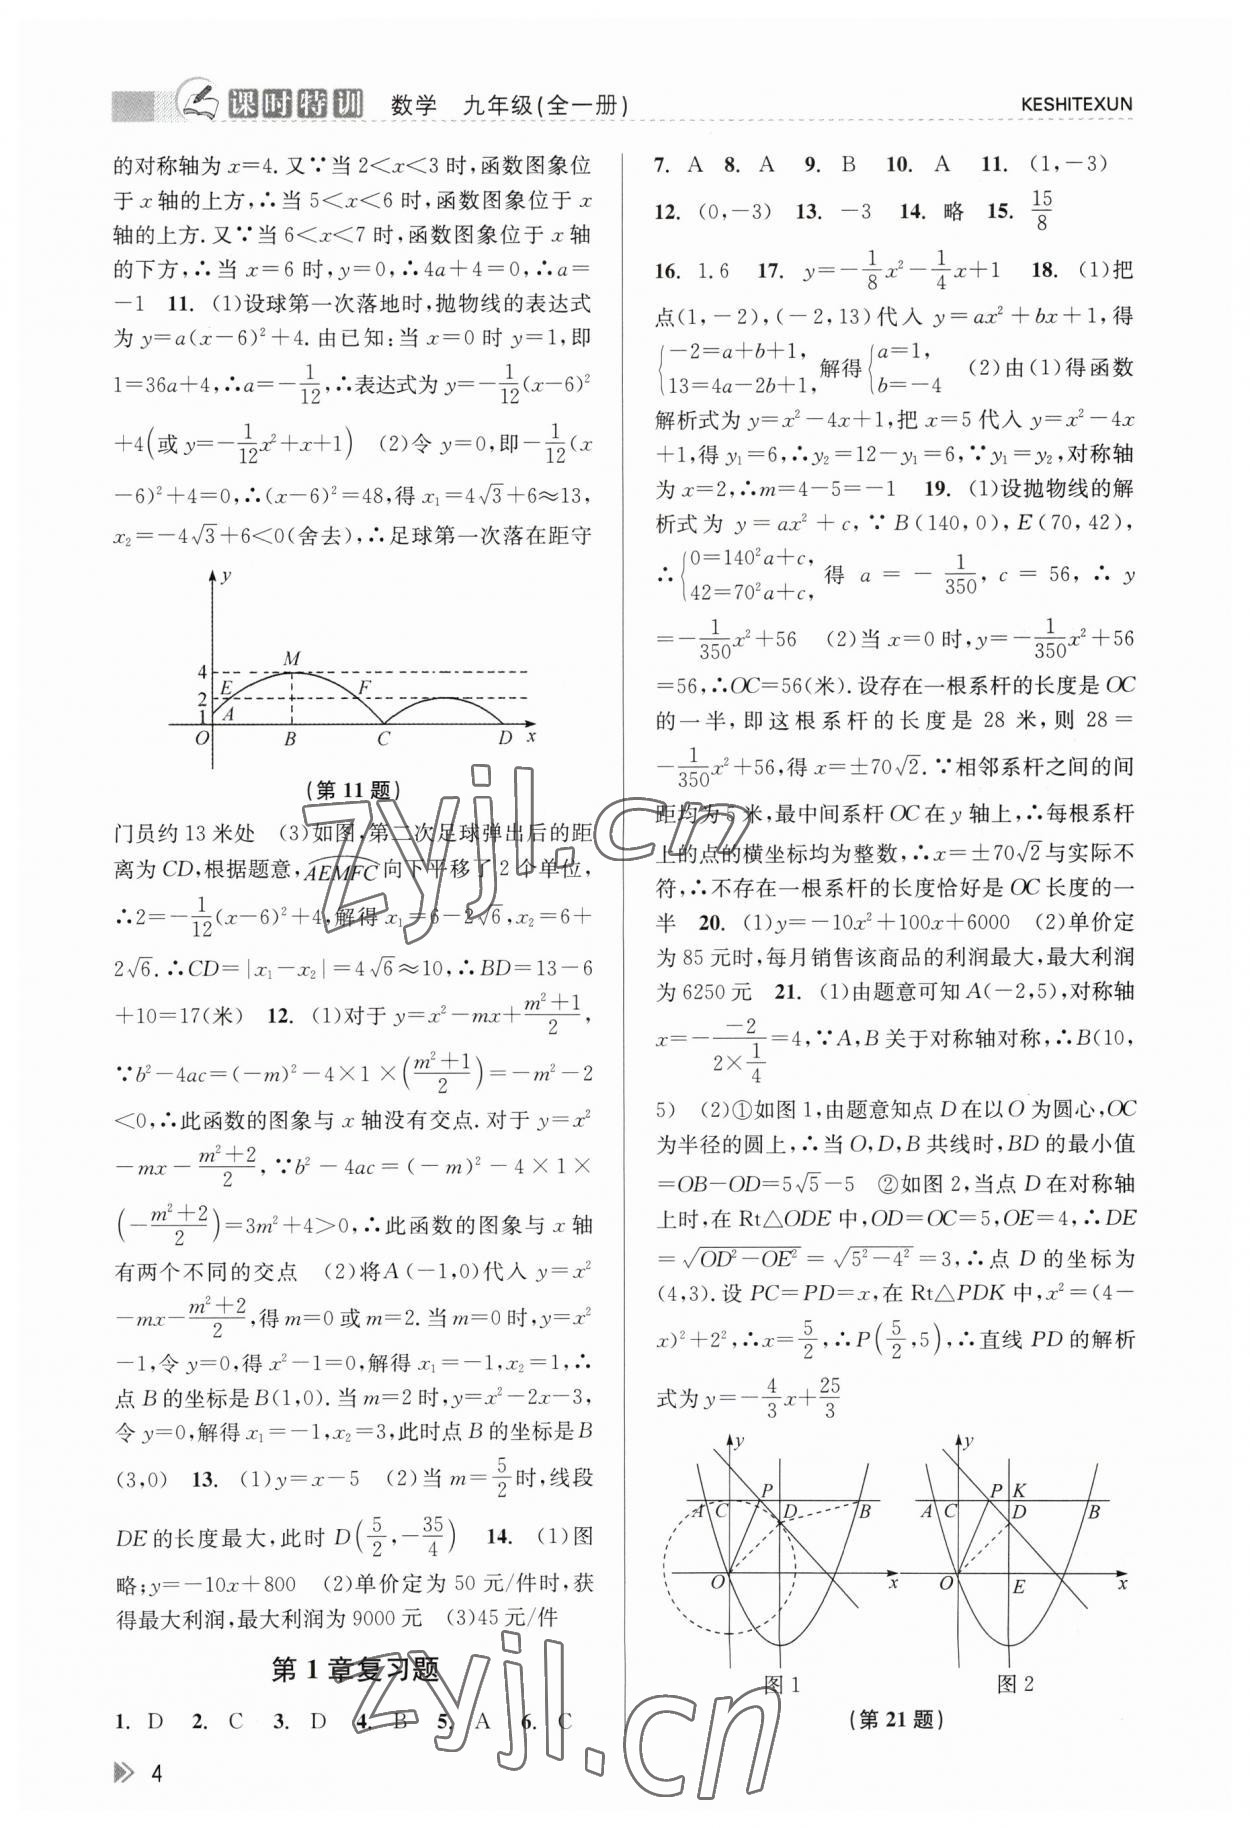 课时特训 数学 九年级(全一册) KESHITEXUN
的对称轴为 x=4. 又∵当 2<x<3 时,函数图象位
于 x 轴的上方,∴当 5<x<6 时,函数图象位于 x
轴的上方.又∵当 6<x<7 时,函数图象位于 x 轴
的下方,∴当 x=6 时,y=0,∴4a+4=0,∴a=
-1 11. (1)设球第一次落地时,抛物线的表达式
为 y=a(x-6)²+4.由已知:当 x=0 时 y=1,即
1=36a+4,∴a=-1/12,∴表达式为 y=-1/12(x-6)²
+4(或 y=-1/12x²+x+1) (2)令 y=0,即-1/12(x
-6)²+4=0,∴(x-6)²=48,得 x₁=4√3+6≈13,
x₂=-4√3+6<0(舍去),∴足球第一次落在距守
y
4 M
2 E F
1 A
O B C D x
(第 11 题)
门员约 13 米处 (3)如图,第二次足球弹出后的距
离为 CD,根据题意,AEMFC向下平移了 2 个单位,
∴2=-1/12(x-6)²+4,解得 x₁=6-2√6,x₂=6+
2√6.∴CD=|x₁-x₂|=4√6≈10,∴BD=13-6
+10=17(米) 12. (1)对于 y=x²-mx+(m²+1)/2,
∵b²-4ac=(-m)²-4×1×((m²+1)/2)=-m²-2
<0,∴此函数的图象与 x 轴没有交点.对于 y=x²
-mx-(m²+2)/2,∵b²-4ac=(-m)²-4×1×
(-(m²+2)/2)=3m²+4>0,∴此函数的图象与 x 轴
有两个不同的交点 (2)将A(-1,0)代入 y=x²
-mx-(m²+2)/2,得 m=0 或 m=2.当 m=0 时,y=x²
-1,令 y=0,得 x²-1=0,解得 x₁=-1,x₂=1,∴
点 B 的坐标是 B(1,0).当 m=2 时,y=x²-2x-3,
令 y=0,解得 x₁=-1,x₂=3,此时点 B 的坐标是 B
(3,0) 13. (1)y=x-5 (2)当 m=5/2时,线段
DE 的长度最大,此时 D(5/2,-35/4) 14. (1)图
略;y=-10x+800 (2)单价定为 50 元/件时,获
得最大利润,最大利润为 9000 元 (3)45 元/件
第 1 章复习题
1. D 2. C 3. D 4. B 5. A 6. C
7. A 8. A 9. B 10. A 11. (1,-3)
12. (0,-3) 13. -3 14. 略 15. 15/8
16. 1.6 17. y=-1/8x²-1/4x+1 18. (1)把
点(1,-2),(-2,13)代入 y=ax²+bx+1,得
{-2=a+b+1, 13=4a-2b+1,解得{a=1, b=-4 (2)由(1)得函数
解析式为 y=x²-4x+1,把 x=5 代入 y=x²-4x
+1,得 y₁=6,∴y₂=12-y₁=6,∵y₁=y₂,对称轴
为 x=2,∴m=4-5=-1 19. (1)设抛物线的解
析式为 y=ax²+c,∵B(140,0),E(70,42),
∴{0=140²a+c, 42=70²a+c,得 a=-1/350,c=56,∴y
=-1/350x²+56 (2)当 x=0 时,y=-1/350x²+56
=56,∴OC=56(米).设存在一根系杆的长度是 OC
的一半,即这根系杆的长度是 28 米,则 28=
-1/350x²+56,得 x=±70√2.∵相邻系杆之间的间
距均为 5 米,最中间系杆 OC 在 y 轴上,∴每根系杆
上的点的横坐标均为整数,∴x=±70√2与实际不
符,∴不存在一根系杆的长度恰好是 OC 长度的一
半 20. (1)y=-10x²+100x+6000 (2)单价定
为 85 元时,每月销售该商品的利润最大,最大利润
为 6250 元 21. (1)由题意可知 A(-2,5),对称轴
x=-(-2)/(2×1/4)=4,∵A,B 关于对称轴对称,∴B(10,
5) (2)①如图 1,由题意知点 D 在以 O 为圆心,OC
为半径的圆上,∴当 O,D,B 共线时,BD 的最小值
=OB-OD=5√5-5 ②如图 2,当点 D 在对称轴
上时,在 Rt△ODE 中,OD=OC=5,OE=4,∴DE
=√(OD²-OE²)=√(5²-4²)=3,∴点 D 的坐标为
(4,3).设 PC=PD=x,在 Rt△PDK 中,x²=(4-
x)²+2²,∴x=5/2,∴P(5/2,5),∴直线 PD 的解析
式为 y=-4/3x+25/3
y
A C P D B
O x
图 1
y
A C P K D B
O E x
图 2
(第 21 题)
4
zyjl.cn
zyjl.cn